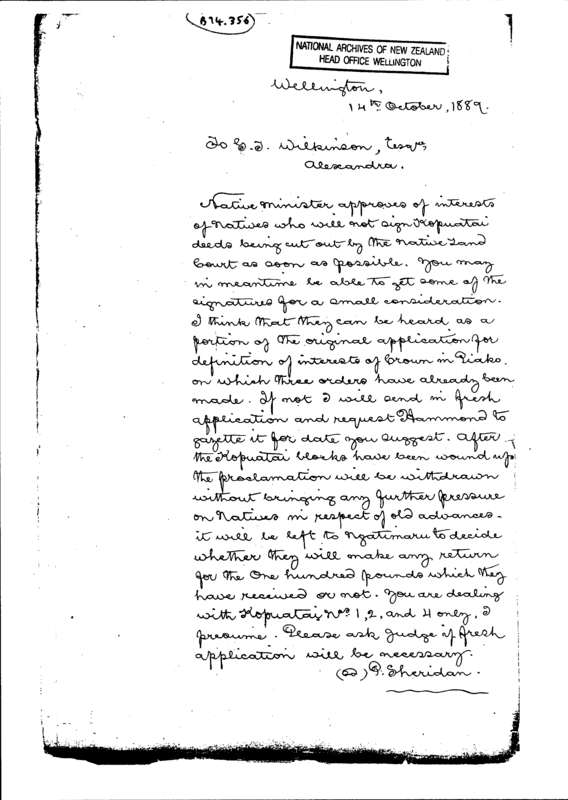 B74.356
NATIONAL ARCHIVES OF NEW ZEALAND
HEAD OFFICE WELLINGTON
Wellington,
14th October, 1889.
To G.T. Wilkinson, Esqre,
Alexandra.
Native Minister approves of interests
of Natives who will not sign Kopuatai
deeds being cut out by the Native Land
Court as soon as possible. You may
in meantime be able to get some of the
signatures for a small consideration.
I think that they can be heard as a
portion of the original application for
definition of interests of Crown in Piako,
on which three orders have already been
made. If not I will send in fresh
application and request Hammond to
gazette it for date you suggest. After
the Kopuatai blocks have been wound up
the proclamation will be withdrawn
without bringing any further pressure
on Natives in respect of old advances -
it will be left to Ngatimaru to decide
whether they will make any return
for the One hundred pounds which they
have received or not. You are dealing
with Kopuatai Nos 1, 2, and 4 only, I
presume. Please ask Judge if fresh
application will be necessary.
(sd) P. Sheridan.